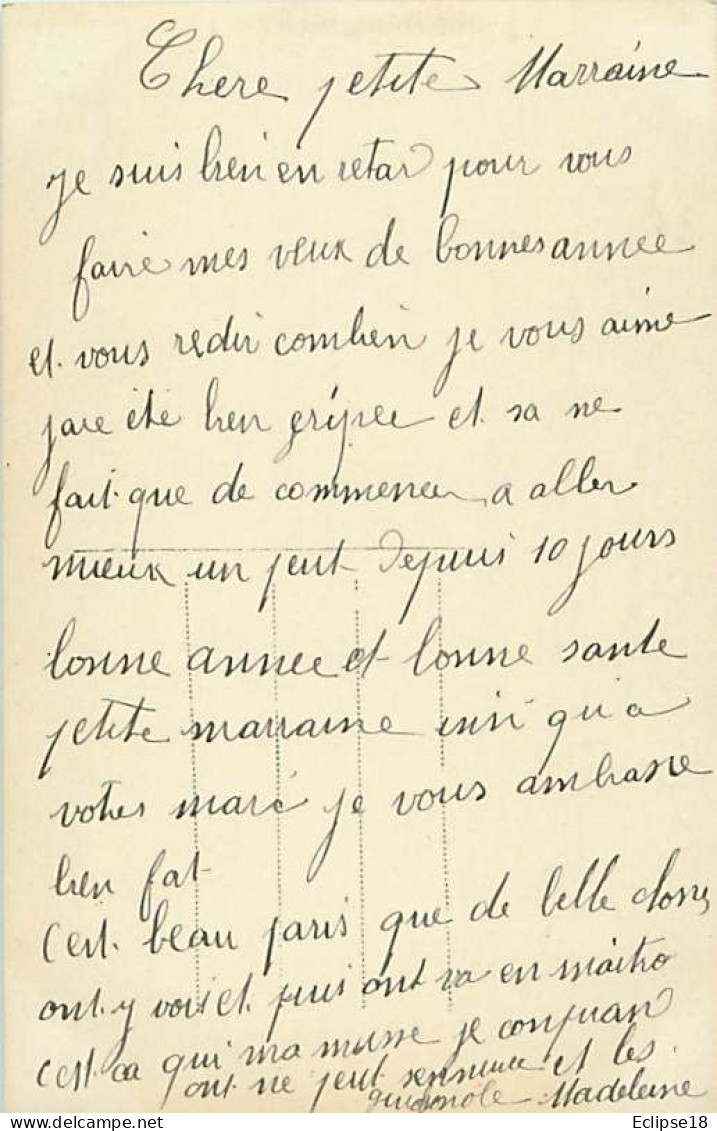 Chere petite Marraine
je suis bien en retar pour vous
faire mes veux de bonnes annee
et vous redir combien je vous aime
jare été bien gripee et sa ne
fait que de commencer a aller
mieux un peut depuis 10 jours
bonne annee et bonne sante
petite marraine insi qu'a
votres mare je vous ambrasse
bien fat
c'est beau paris que de belle choses
ont y voit et puis ont va en maitro
c'est ca qui ma musse je conpran
ont ne peut sennuiée et les
guignole Madeleine
www.delcampe.net Eclipse18